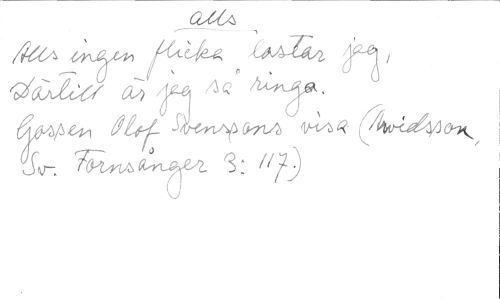 alls
Alls ingen flicka lastar jag,
Därtill är jag så ringa.
Gossen Olof Svenssons visa (Arvidsson,
Sv. Fornsånger 3: 117.)